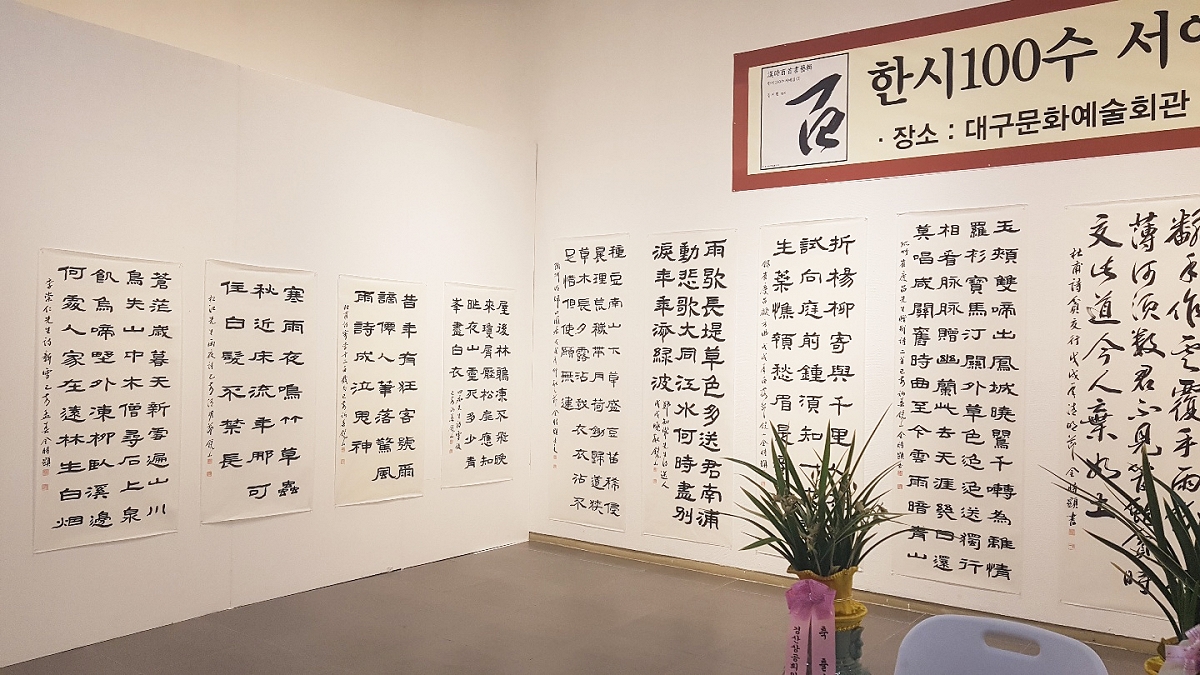 한시100수 서예
· 장소 : 대구문화예술회관
漢詩百首書藝輯
百
蒼茫歲暮天新雪遍山川
鳥失山中木僧尋石上泉
飢烏啼野外凍柳臥溪邊
何處人家在遠林生白烟
李崇仁先生詩新雪 己亥
寒雨夜鳴竹草蟲
秋近床流年那可
住白髮不禁長
昔年有狂客號爾
謫僊人筆落驚風
雨詩成泣鬼神
屋後林鴉凍不飛晚
來瓊屑壓松扉應知
昨夜山靈死多少青
峯盡白衣
種豆南山下草盛豆苗稀侵
晨理荒穢帶月荷鋤歸道狹
草木長夕露沾我衣衣沾不
足惜但使願無違
雨歇長堤草色多送君南浦
動悲歌大同江水何時盡別
淚年年添綠波
折楊柳寄與千里
試向庭前種須知
生葉憔顇愁眉是
玉頰雙啼出鳳城曉鶯千囀為離情
羅衫寶馬汀關外草色迢迢送獨行
相看脉脉贈幽蘭此去天涯幾日還
莫唱咸關舊時曲至今雲雨暗青山
翻手作雲覆手雨
薄何須數君不見管鮑貧時
交此道今人棄如土
杜甫詩貧交行 戊戌
축
경산상공회의